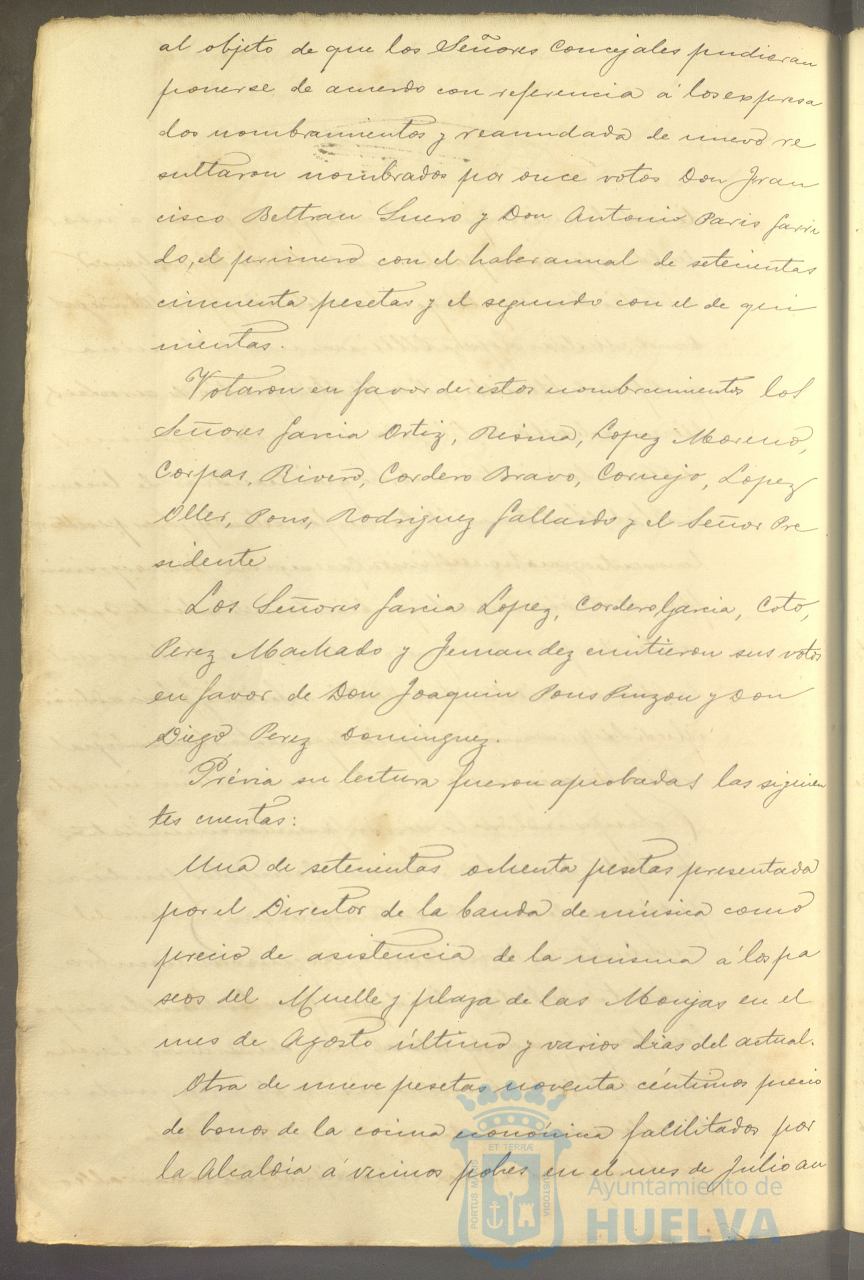 al objeto de que los Señores Concejales pudieran
ponerse de acuerdo con referencia á los expresa
dos nombramientos y reanudada de nuevo re
sultaron nombrados por once votos Don Fran
cisco Beltran Suero y Don Antonio Paris Garri
do, el primero con el haber annal de setecientas
cincuenta pesetas y el segundo con el de qui
nientas.
Votaron en favor de estos nombramientos los
Señores Garcia Ortiz, Risma, Lopez Moreno,
Corpas, Rivero, Cordero Bravo, Cornejo, Lopez
Oller, Pons, Rodriguez Gallardo y el Señor Pre
sidente
Los Señores Garcia Lopez, Cordero Garcia, Coto,
Perez Machado y Fernandez emitieron sus votos
en favor de Don Joaquin Pons Pinzon y Don
Diego Perez Dominguez.
Prévia su lectura fueron aprobadas las siguien
tes cuentas:
Una de setecientas ochenta pesetas presentada
por el Director de la banda de música como
precio de asistencia de la misma á los pa
seos del Muelle y plaza de las Monjas en el
mes de Agosto último y varios dias del actual.
Otra de nueve pesetas noventa céntimos precio
de bonos de la cocina económica facilitados por
la Alcaldia á vecinos pobres en el mes de Julio an
PORTUS MARIS ET TERRÆ CUSTODIA
Ayuntamiento de
HUELVA